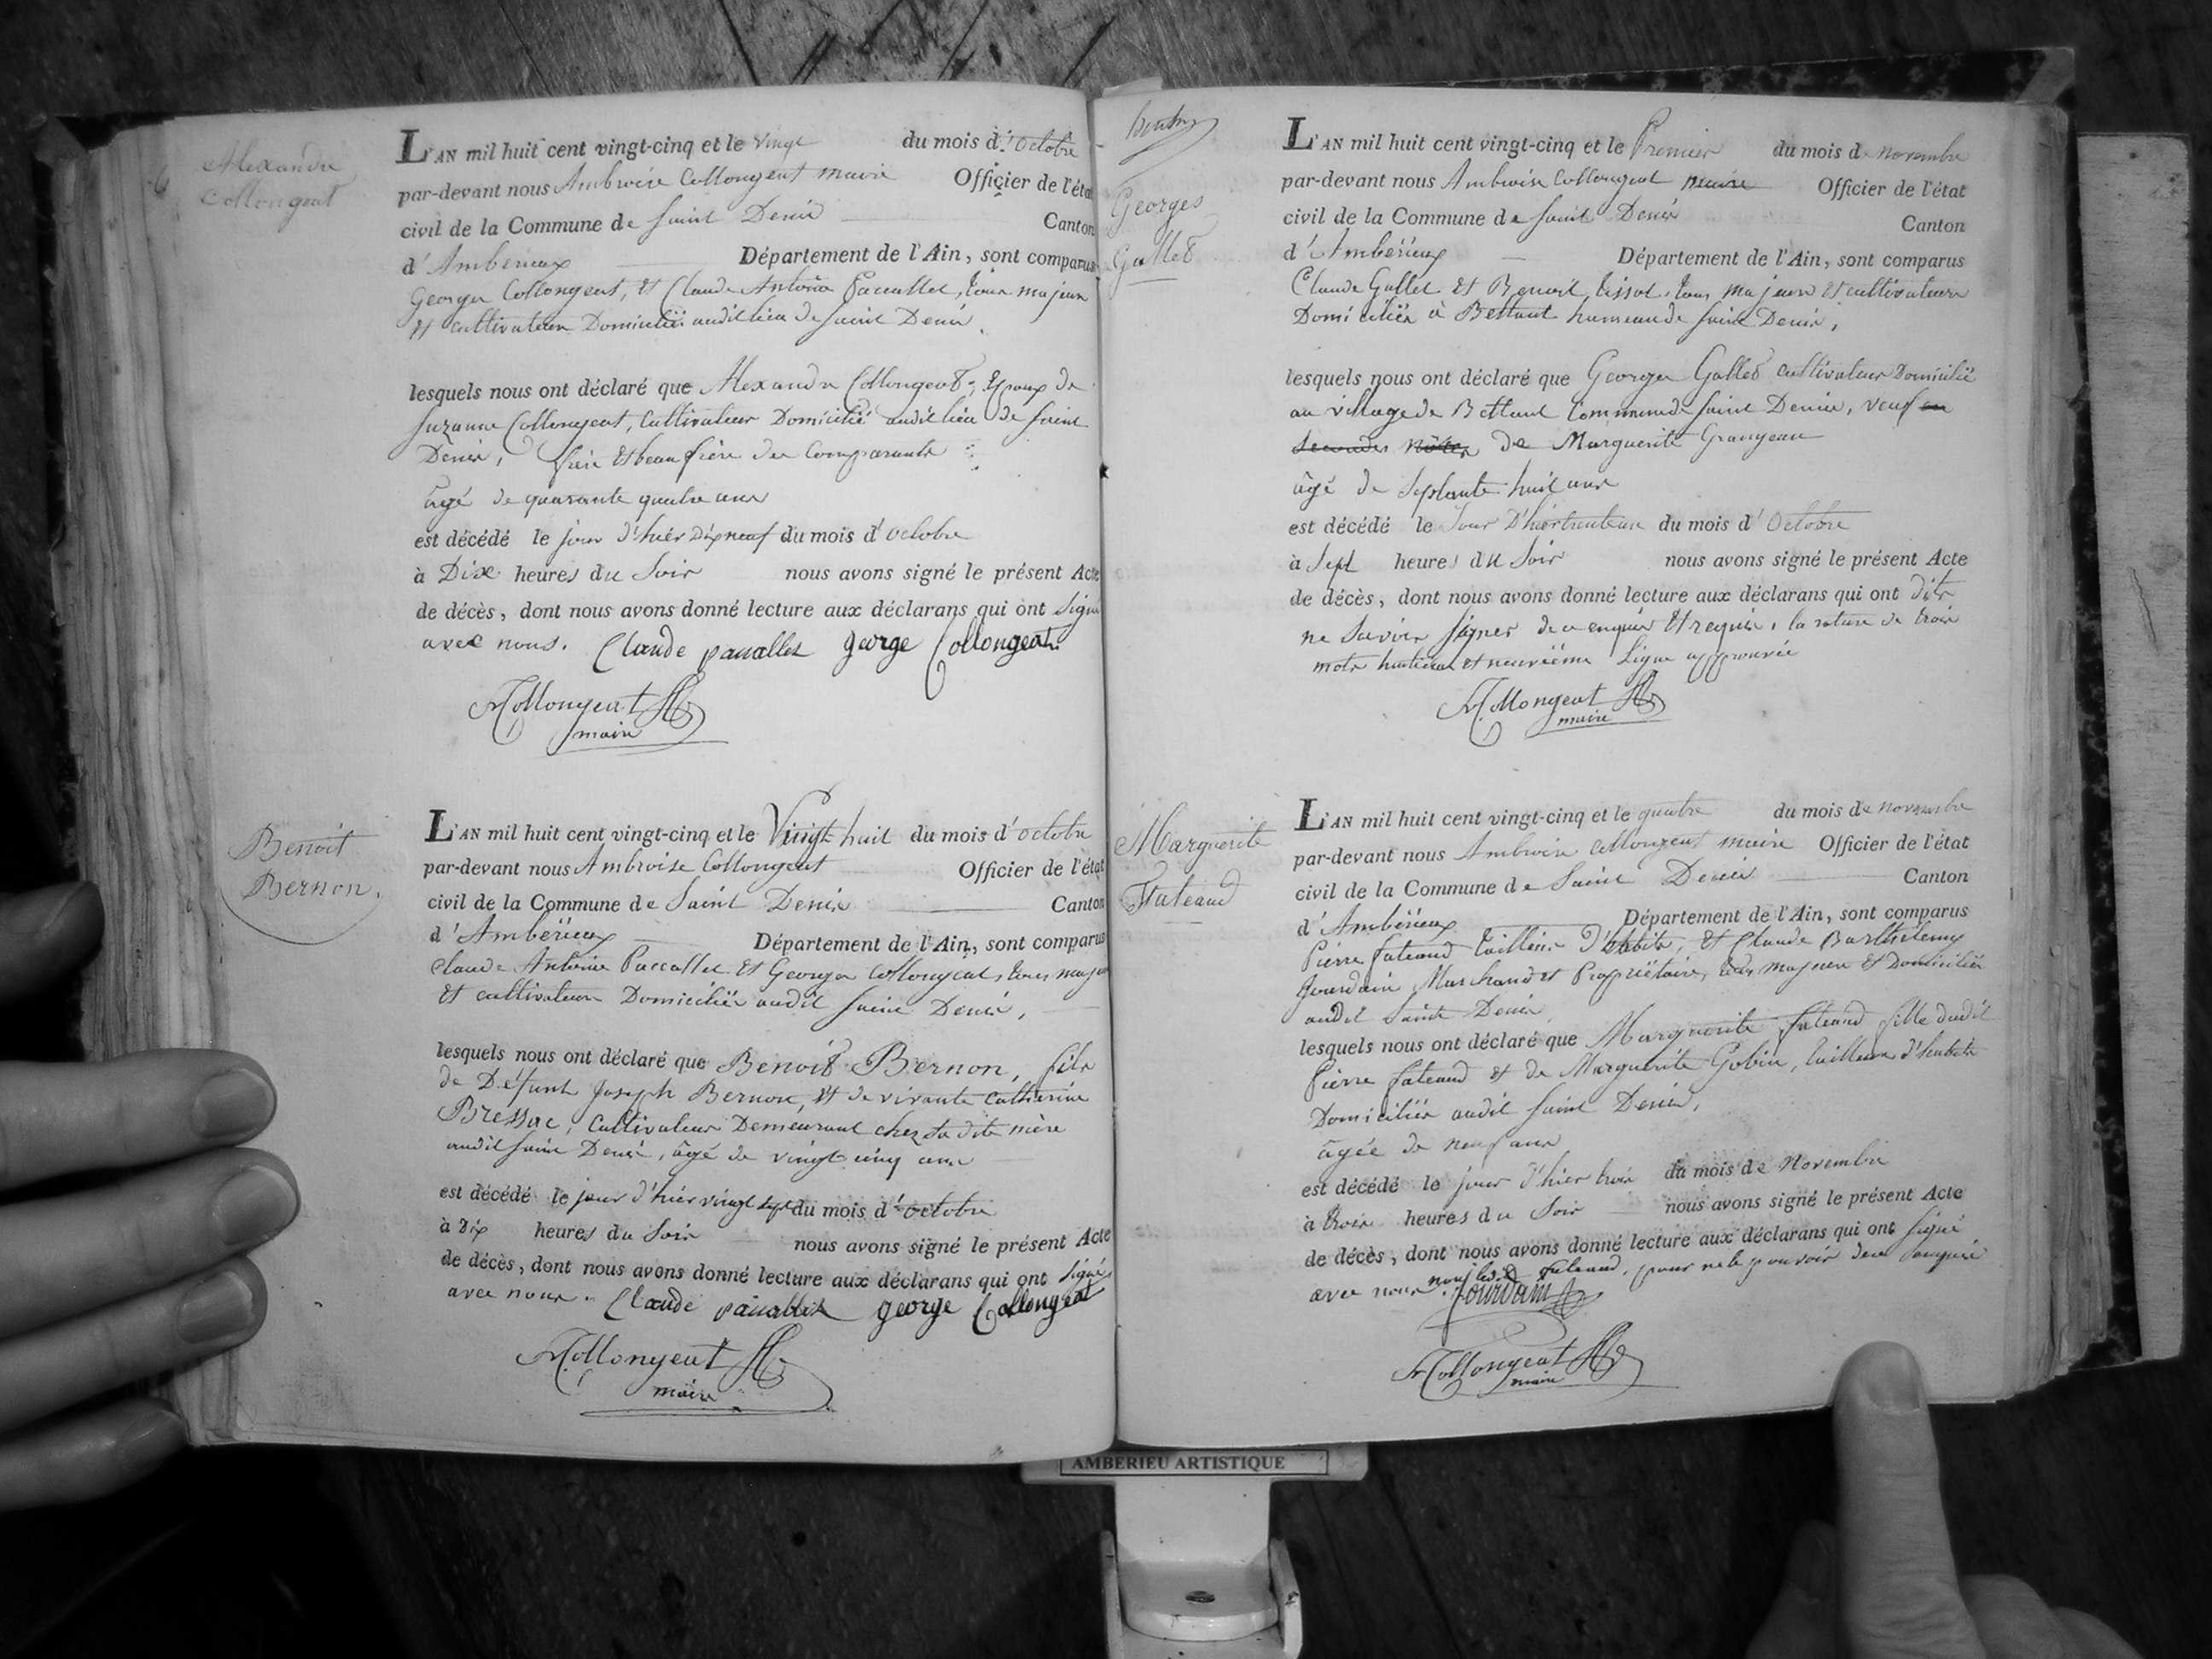 6
Alexandre
Collongeat
L'AN mil huit cent vingt-cinq et le vingt du mois d'octobre
par-devant nous Ambroise Collongeat maire Officier de l'état
civil de la Commune de Saint Denis Canton
d'Amberieux Département de l'Ain, sont comparus
George Collongeat, et Claude Antoine Paccallet, tous majeurs
et cultivateurs Domiciliés audit lieu de Saint Denis,
lesquels nous ont déclaré que Alexandre Collongeat, Epoux de
Suzanne Collongeat, Cultivateur Domicilié audit lieu de Saint
Denis, frère et beau frère des Comparants
âgé de quarante quatre ans
est décédé le jour d'hier Dix neuf du mois d'octobre
à Dix heures du Soir nous avons signé le présent Acte
de décès, dont nous avons donné lecture aux déclarans qui ont Signé
avec nous. Claude pacallet george Collongeat
Collongeat
maire
Benoit
Bernon.
L'AN mil huit cent vingt-cinq et le Vingt huit du mois d'octobre
par-devant nous Ambroise Collongeat Officier de l'état
civil de la Commune de Saint Denis Canton
d'Amberieux Département de l'Ain, sont comparus
Claude Antoine Paccallet et George Collongeat, tous majeurs
et cultivateurs Domiciliés audit Saint Denis,
lesquels nous ont déclaré que Benoit Bernon, fils
de Défunt Joseph Bernon, et de vivante Catherine
Bressac, Cultivateur Demeurant chez sa dite mère
audit Saint Denis, âgé de vingt cinq ans
est décédé le jour d'hier vingt sept du mois d'octobre
à dix heures du Soir nous avons signé le présent Acte
de décès, dont nous avons donné lecture aux déclarans qui ont Signés
avec nous. Claude pacallet george Collongeat
Collongeat
maire
Georges
Gallet
L'AN mil huit cent vingt-cinq et le Premier du mois de novembre
par-devant nous Ambroise Collongeat maire Officier de l'état
civil de la Commune de Saint Denis Canton
d'Amberieux Département de l'Ain, sont comparus
Claude Gallet et Benoit Tissot, tous majeurs et cultivateurs
Domiciliés à Bettant hameau de Saint Denis,
lesquels nous ont déclaré que George Gallet cultivateur Domicilié
au village de Bettant Commune de Saint Denis, veuf en
secondes noces de Marguerite Grangeau
âgé de Septante huit ans
est décédé le Jour D'hier trente un du mois d'Octobre
à Sept heures du Soir nous avons signé le présent Acte
de décès, dont nous avons donné lecture aux déclarans qui ont dits
ne Savoir signer de ce enquis et requis, la rature de trois
mots huitième et neuvième Ligne approuvée
Collongeat
maire
Marguerite
Fateaud
L'AN mil huit cent vingt-cinq et le quatre du mois de novembre
par-devant nous Ambroise Collongeat maire Officier de l'état
civil de la Commune de Saint Denis Canton
d'Amberieux Département de l'Ain, sont comparus
Pierre fateaud tailleur D'habits, et Claude Barthélemy
Jourdain Marchand et Propriétaire, tous majeurs et Domiciliés
audit Saint Denis
lesquels nous ont déclaré que Marguerite fateaud fille dudit
Pierre fateaud et de Marguerite Gobin, tailleur d'habits
Domiciliés audit Saint Denis,
âgée de neuf ans
est décédé le jour d'hier trois du mois de Novembre
à trois heures du Soir nous avons signé le présent Acte
de décès, dont nous avons donné lecture aux déclarans qui ont signé
avec nous non ledit fateaud, pour ne le pouvoir de ce enquis
Jourdain
Collongeat
maire
AMBERIEU ARTISTIQUE